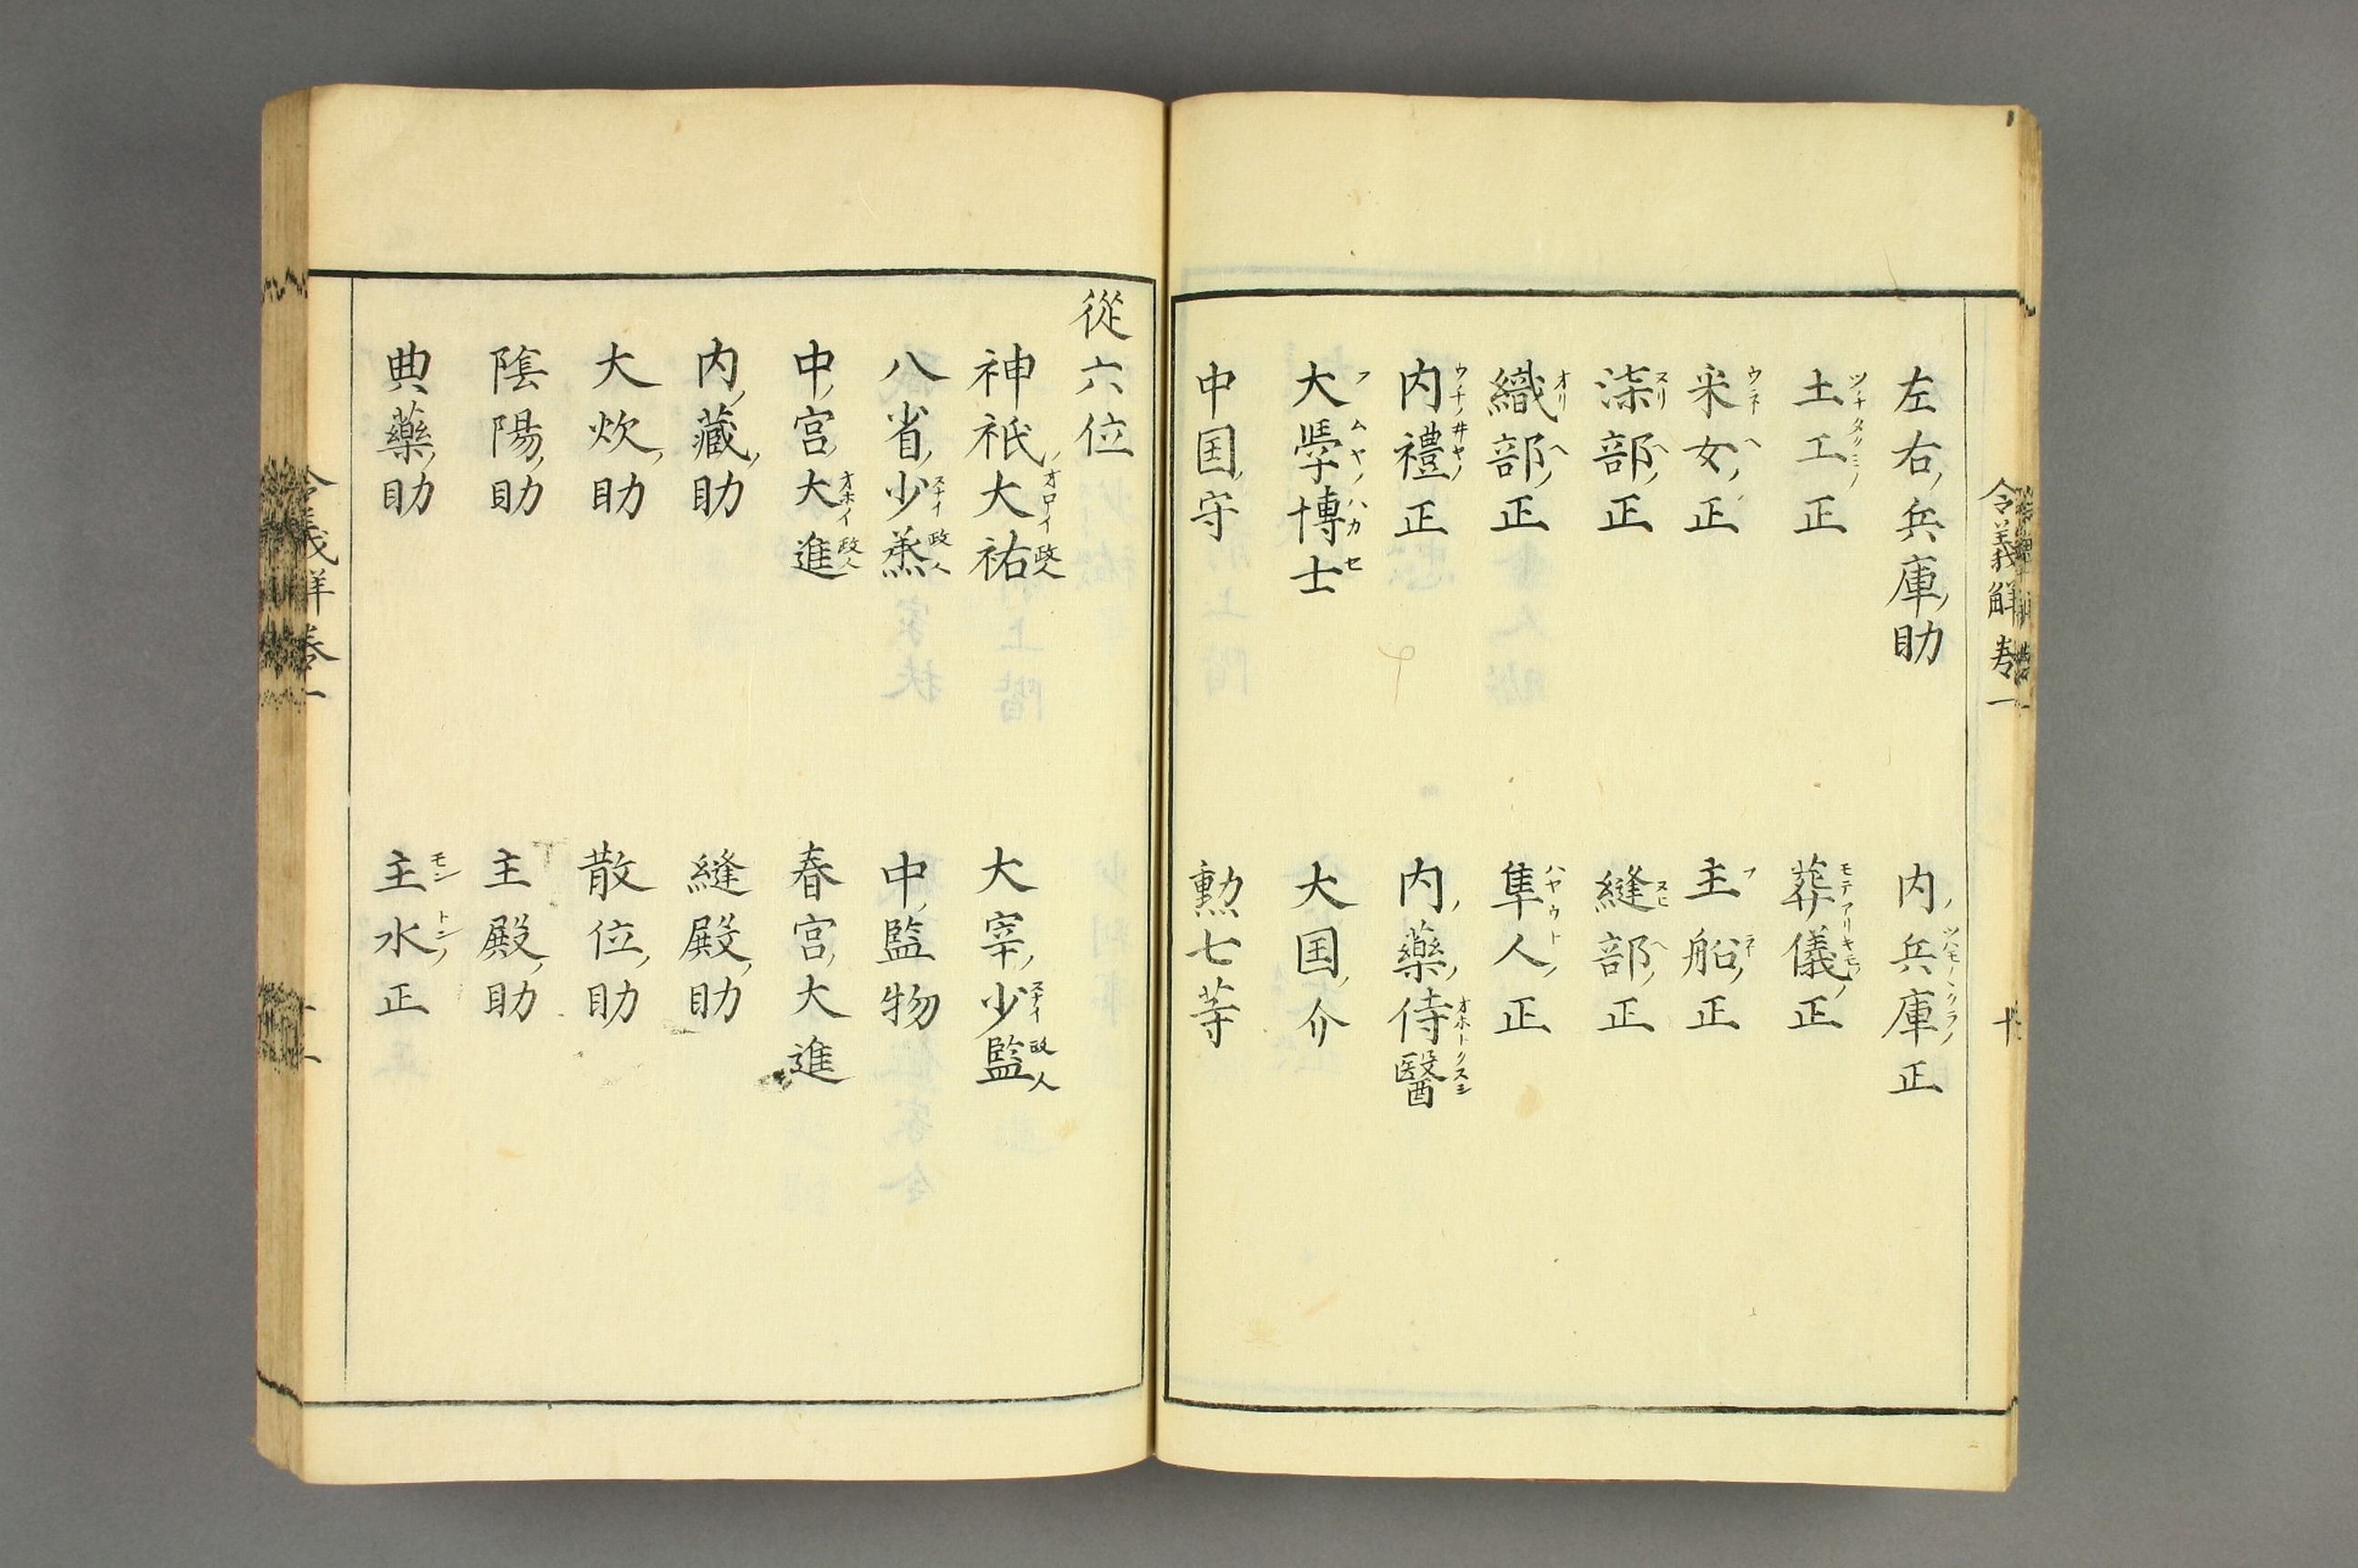 令義解卷一
十
左右兵庫助 内兵庫正
土工正 葬儀正
采女正 主船正
漆部正 縫部正
織部正 隼人正
内禮正 内藥侍醫
大學博士 大国介
中国守 勲七等
從六位
神祇大祐 大宰少監
八省少丞 中監物
中宮大進 春宮大進
内藏助 縫殿助
大炊助 散位助
陰陽助 主殿助
典藥助 主水正
令義解卷一
十一